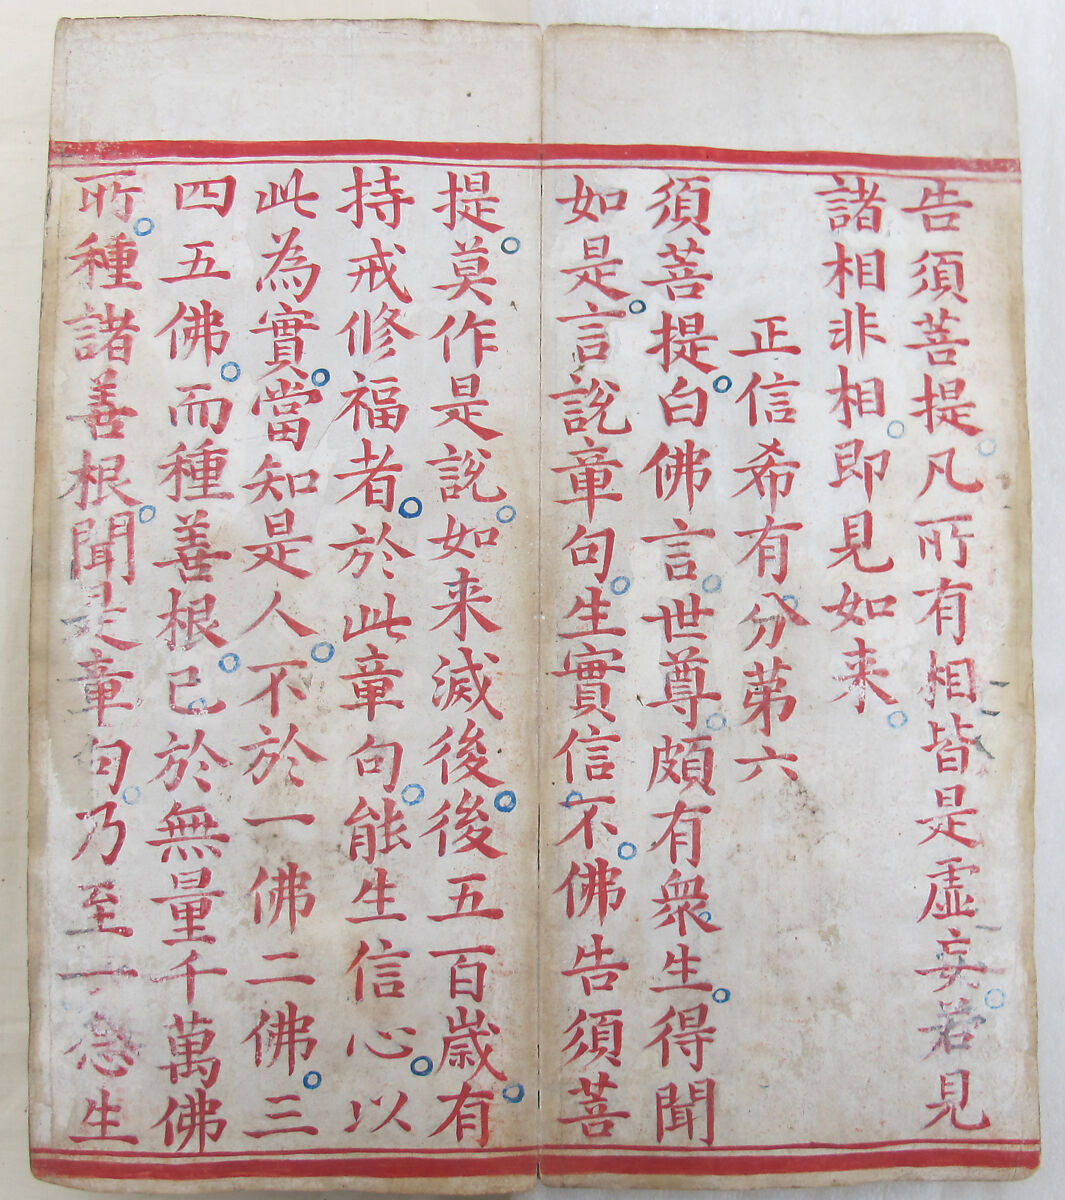 告須菩提凡所有相皆是虛妄若見
諸相非相即見如来
正信希有分苐六
須菩提白佛言世尊頗有衆生得聞
如是言說章句生實信不佛告須菩
提莫作是說如来滅後後五百嵗有
持戒修福者於此章句能生信心以
此為實當知是人不於一佛二佛三
四五佛而種善根已於無量千萬佛
所種諸善根聞是章句乃至一念生